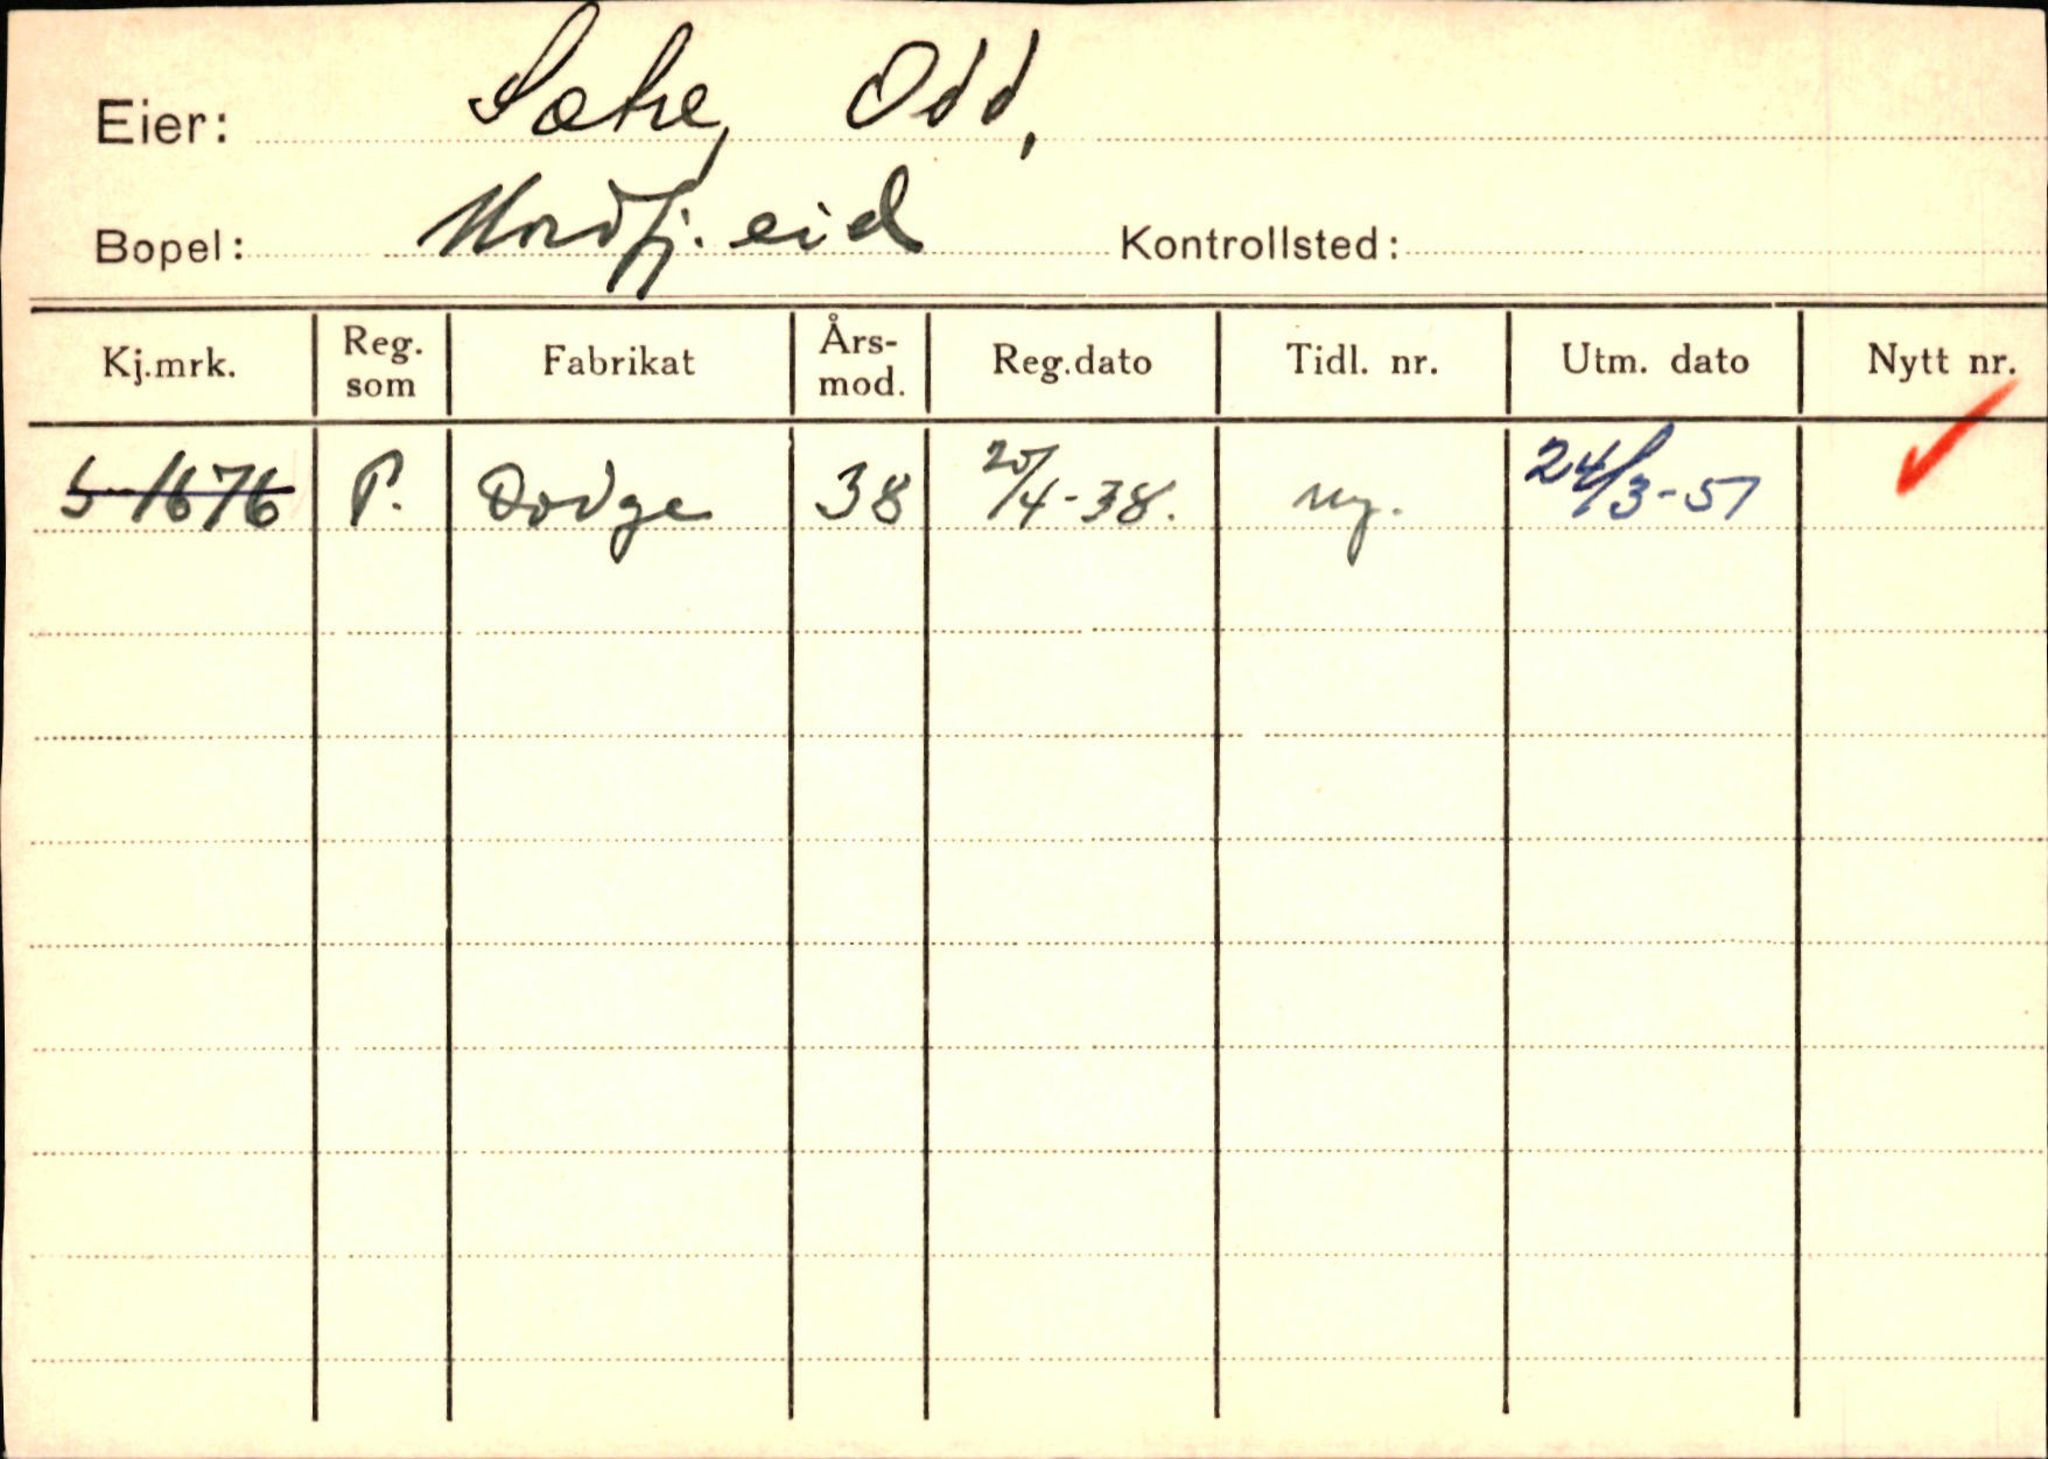 Eier: Sætre, Odd,
Bopel: Nordfj. eid Kontrollsted:
Kj.mrk. Reg. som Fabrikat Års-mod. Reg.dato Tidl. nr. Utm. dato Nytt nr.
S-1676 P. Dodge 38 20/4-38. ny. 24/3-51